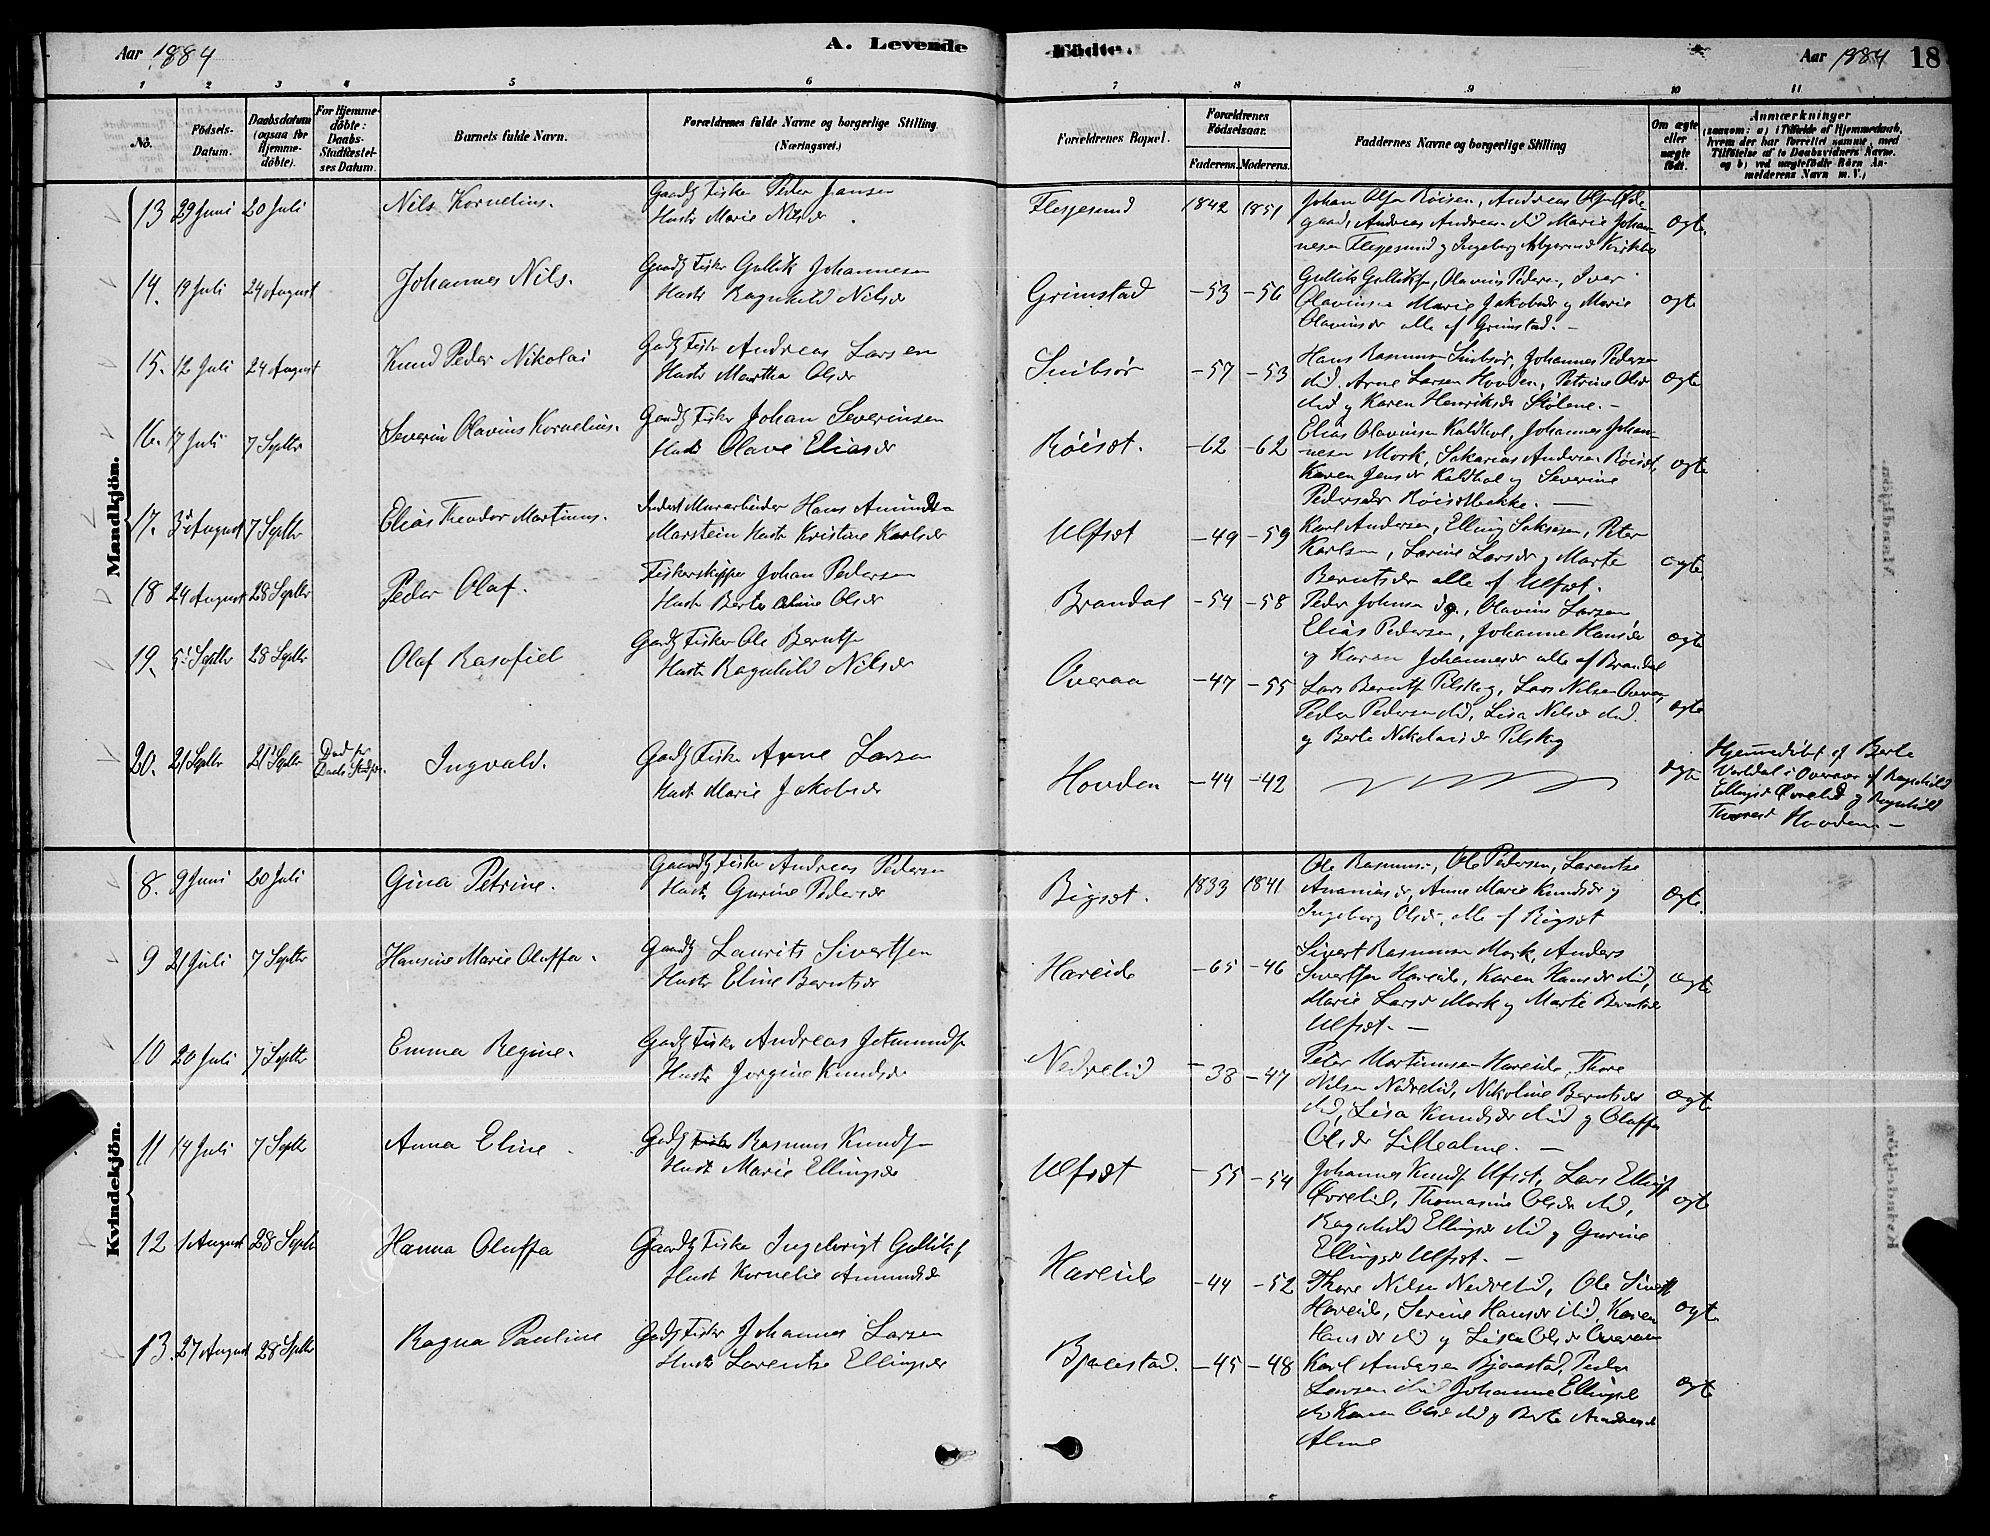 Aar 1884
A. Levende
Födte.
Aar 1884
18
1 2 3 4 5 6 7 8 9 10 11
No.
Födsels-
Datum.
Daabsdatum
(ogsaa for
Hjemme-
döbte).
For Hjemme-
döbte:
Daabs-
Stadfæstel-
ses Datum.
Barnets fulde Navn.
Forældrenes fulde Navne og borgerlige Stilling
(Næringsvei.)
Forældrenes Bopæl.
Forældrenes
Födselsaar.
Faderens. Moderens.
Faddernes Navne og borgerlige Stilling
Om ægte
eller
uægte
födt.
Anmærkninger
(saasom: a) i Tilfælde af Hjemmedaab,
hvem der har forrettet samme, med
Tilföielse af to Daabsvidners Navne.
og b) ved uægtefödte Börn An-
melderens Navn m. V.)
Mandkjön.
13 29 Juni 20 Juli Nils Kornelius.
Gaardb Fisker Peder Jansen
Hustr Marie Nilsdr
Flesjesund 1842 1851
Johan Olsen Röisen, Andreas Olsen Öde-
gaard, Andreas Andreas. ibid Marie Johan-
nesen Flesjesund og Ingeborg
ægte.
14. 19 Juli 24 August Johannes Nils.
Gaardb Fisker Gullik Johannesen
Hustr Ragnhild Nilsdr
Grimstad -53 -56
Gullik Gulliks, Olavius Peders, Ivar
Olavinsen Marie Jakobsdr og Marie
Olavinsdr alle af Grimstad. -
ægte
15. 12 Juli 24 August Knud Peder Nikolai
Gaardb Fisker Andreas Larsen
Hustr Martha Olsdr
Snibsör -57 -53
Hans Rasmusen Snibsör, Johannes Pedersen
ibid. Arne Larsen Hovden, Petrine Olsdr
ibid og Karen Henriksdr Stölene. -
ægte
16. 17 Juli 7 Septbr Severin Olavius Kornelius.
Gaardb Fisker Johan Severinsen
Hustr Olave Eliasdr
Röisæt. -62 -62
Elias Olavinsen Kaldhol, Johannes Johan-
nesen Mork, Sakarias Andersen Röisæt,
Karen Jensdr Kaldhol og Severine
Pedersdr Röisætbakke. -
ægte
17. 3 August 7 Septbr Elias Theodor Martinus.
Inderst Murarbeider Hans Amundsen
Marstein Hustr Kristine Karlsdr
Ulfsæt -49 -59
Karl Andersen, Elling Saksesen, Peter
Karlsen, Larine Larsdr og Marte
Berntsdr alle af Ulfsæt.
ægte
18 24 August 28 Septbr Peder Olaf.
Fiskerskipper Johan Pedersen
Hustr Berte Oline Olsdr
Brandal -54 -58
Peder Johnsen, Olavius Larsen
Elias Pedersen, Johanne Hansdr
og Karen Johannesdr alle af Brandal
ægte
19. 5 Septbr 28 Septbr Olaf Rasofiel
Gaardb Fisker Ole Berntsen
Hustr Ragnhild Nilsdr
Overaa -47 -55
Lars Berntsen Pilskog, Lars Nilsen Overaa,
Peder Pedersen ibid, Lisa Nilsdr ibid.
og Berte Nikolaisdr Pilskog
ægte
20. 21 Septbr 21 Septbr Död før Daabs Stadf. Ingvald.
Gaardb Fisker Arne Larsen
Hustr Marie Jakobsdr
Hovden -44 -42
ægte
Hjemmedöbt af Berte
Vartdal i Overaae af Ragnhild
Ellingsd Övrelid og Ragnhild
Thoresd Hovden. -
Kvindekjön.
8. 9 Juni 20 Juli Gina Petrine.
Gaardb Fisker Andreas Pedersen
Hustr. Gurine Pedersdr
Bigsæt. 1833 1841
Ole Rasmus-, Ole Pedersen, Larentse
Ananiasdr, Anne Marie Knudsdr og
Ingeborg Olsdr. alle af Bigsæt
ægte.
9 21 Juli 7 Septbr Hansine Marie Oluffa.
Gaardb Laurits Sivertsen
Hustr Eline Berntsdr
Hareide -65 -46
Sivert Rasmusen Mork, Anders
Sivertsen Hareide, Karen Hansdr ibid,
Marie Larsdr Mork og Marte Berntsdr
Ulfsæt. -
ægte
10 20 Juli 7 Septbr Emma Regine.
Gaardb Fisker Andreas Jetmundsen
Hustr Jorgine Knudsdr
Nedrelid -38 -47
Peter Martinusen Hareide, Thore
Nilsen Nedrelid, Nikoline Berntsdr
ibid, Lisa Knudsdr ibid og Oluffa
Olsdr Lillealme. -
ægte
11 14 Juli 7 Septbr Anna Eline
Gaardb Fisker Rasmus Knudsen
Hustr Marie Ellingsdr
Ulfsæt -55 -54
Johannes Knudsen Ulfsæt, Lars Ellingsen
Övrelid, Thomasine Olsdr ibid,
Ragnhild Ellingsdr ibid og Gurine
Ellingsdr Ulfsæt. -
ægte
12 1 August 28 Septbr Hanna Oluffa
Gaardb Fisker Ingebrigt Gulliksen
Hustr Kornelie Amundsdr
Hareide -44 -52
Thore Nilsen Nedrelid, Ole Sivertsen
Hareide, Serine Hansdr ibid, Karen
Hansdr ibid og Lisa Olsdr Overaae
ægte
13. 27 August 28 Septbr Ragna Pauline
Gaardb Fisker Johannes Larsen
Hustr Larentse Ellingsdr
Bjaastad. -45 -48
Karl Andersen Bjaastad, Peder
Larsen ibid Johanne Ellingsd
ibid Karen Olsd ibid og Berte Andreasdr
Alme
ægte